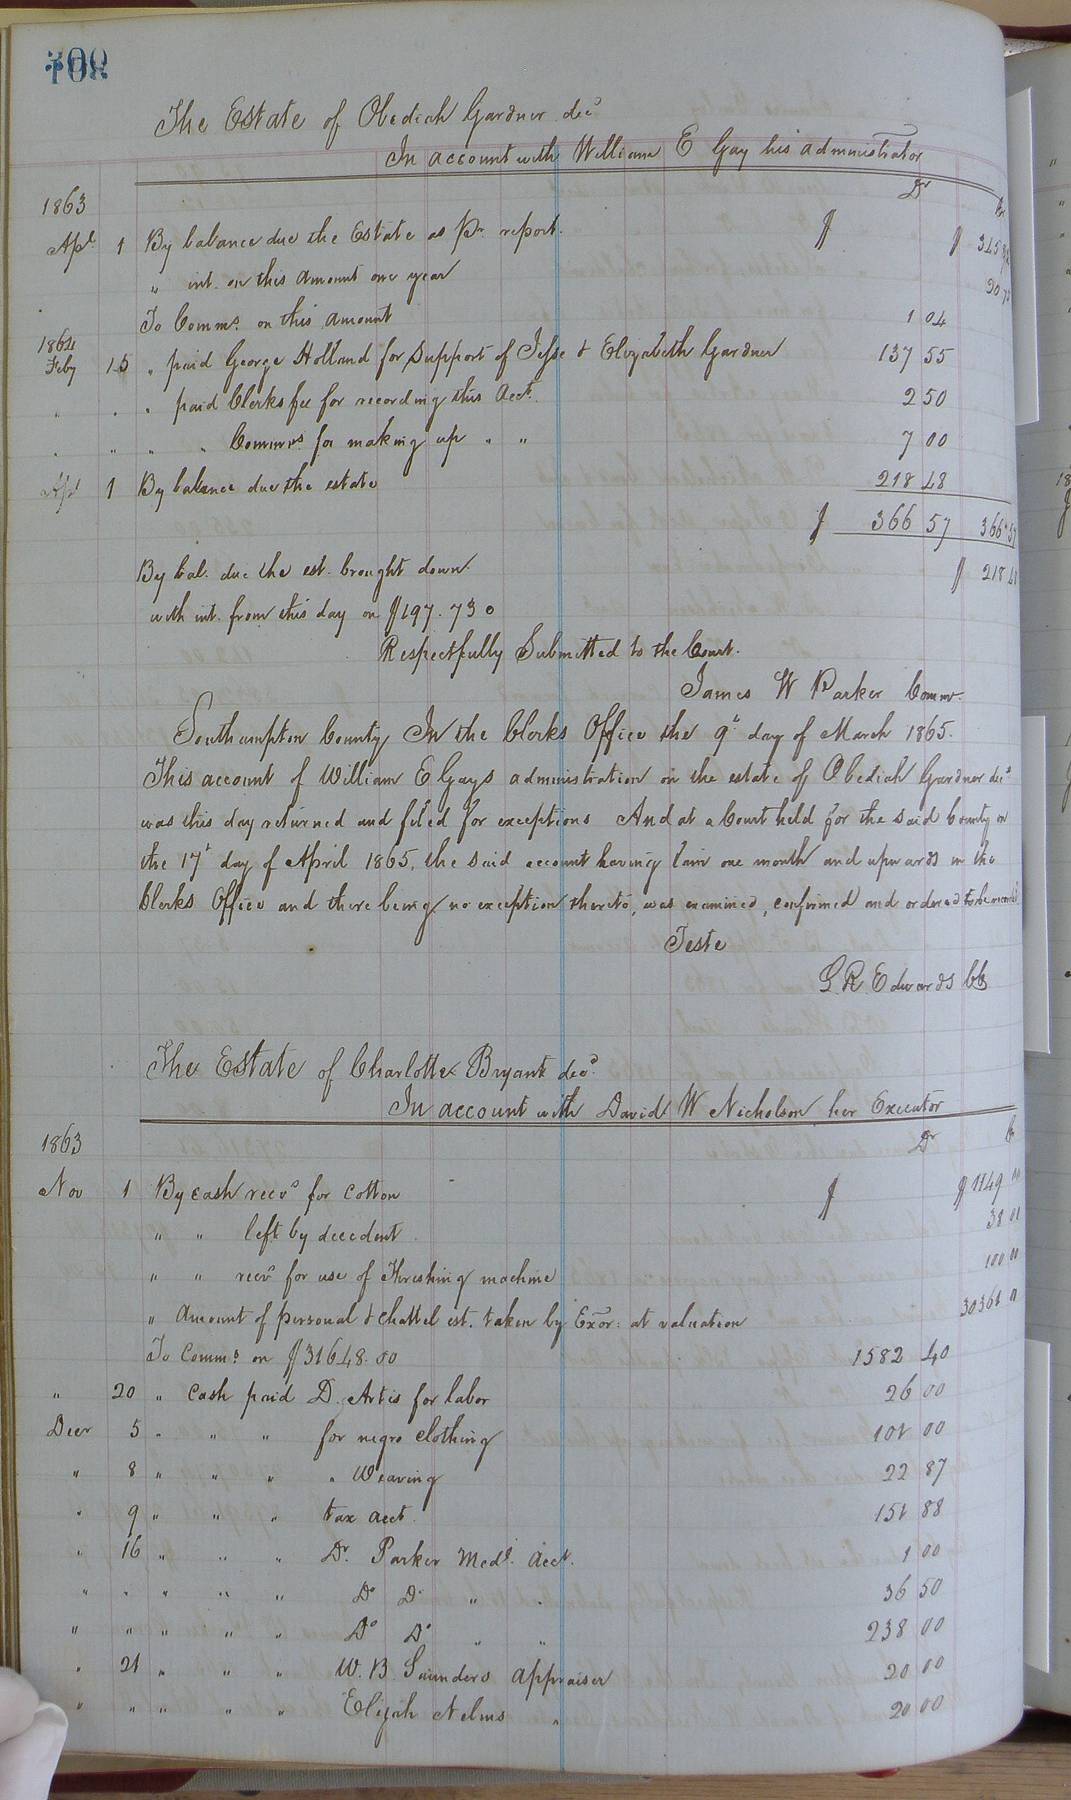 The Estate of Obediah Gardner decd
In account with William E Gay his administrator
Dr Cr
1863
Apl 1 By balance due the Estate as pr. report. $ $ 345
" int. on this amount one year 20
To Comms. on this amount 1 04
1864
Feby 15 " paid George Holland for Support of Jesse & Elizabeth Gardner 137 55
" " " paid Clerks fee for recording this Acct. 2 50
" " " " Commrs for making up " " 7 00
Apl 1 By balance due the estate 218 48
$ 366 57 366 57
By bal. due the est. brought down $ 218 48
with int. from this day on $197.73
Respectfully Submitted to the Court.
James W Parker Commr.
Southampton County In the Clerks Office the 9th day of March 1865.
This account of William E Gays administration on the estate of Obediah Gardner decd
was this day returned and filed for exceptions And at a Court held for the said County on
the 17th day of April 1865, the said account having lain one month and upwards in the
Clerks Office and there being no exception thereto, was examined, confirmed and ordered to be recorded
Teste
L. R. Edwards Clk
The Estate of Charlotte Bryant decd.
In account with David W Nicholson her Executor
1863 Dr Cr
Nov 1 By cash recvd for cotton $ $ 1149 00
" " left by decedent 38 01
" " recvd for use of Threshing machine 100 00
" Amount of personal & chattel est. taken by Exor: at valuation 30361
To Comms on $31648.00 1582 40
" 20 " Cash paid D. Artis for labor 26 00
Decr 5 " " " for negro clothing 101 00
" 8 " " " " Weaving 22 87
" 9 " " " tax acct. 151 88
" 16 " " " Dr. Parker Medl. Acct. 1 00
" " " " " Do Do " " 36 50
" " " " " Do Do " " 238 00
" 21 " " " W. B. Saunders Appraiser 20 00
" " " " " Elijah Nelms " 20 00